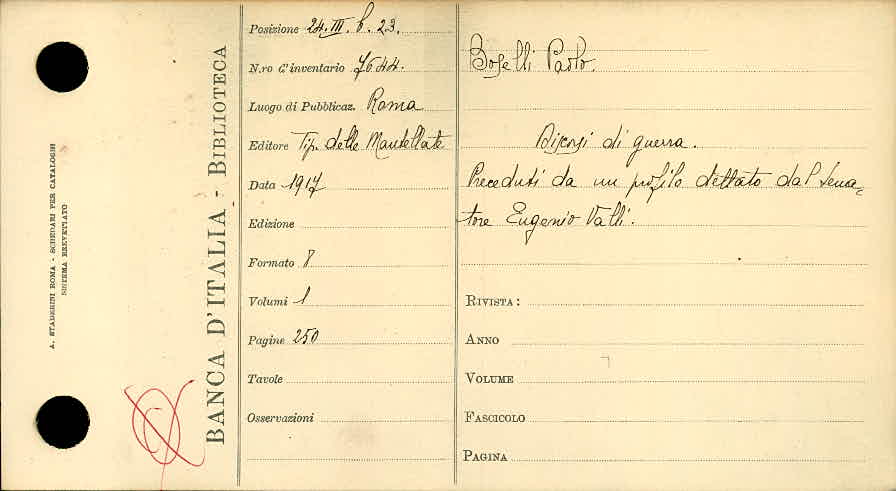 A. STADERINI ROMA - SCHEDARI PER CATALOGHI
SISTEMA BREVETTATO
BANCA D'ITALIA - BIBLIOTECA
Posizione 24.III.b.23.
N.ro d'inventario 7644.
Luogo di Pubblicaz. Roma
Editore Tip. delle Mantellate
Data 1917
Edizione
Formato 8
Volumi 1
Pagine 250
Tavole
Osservazioni
Boselli Paolo.
Discorsi di guerra.
Preceduti da un profilo dettato dal Sena-
tore Eugenio Valli.
RIVISTA:
ANNO
VOLUME
FASCICOLO
PAGINA